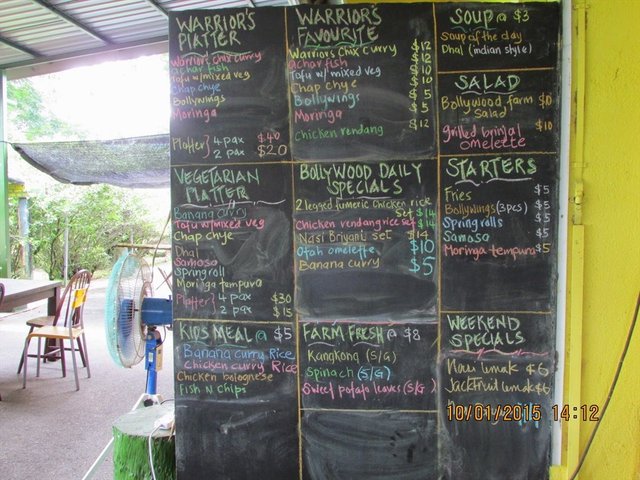 WARRIOR'S
PLATTER
Warriors chix curry
Achar fish
Tofu w/mixed veg
Chap chye
Bollywings
Moringa
Platter} 4 pax $40
2 pax $20
WARRIOR'S
FAVOURITE
Warriors chix curry $12
Achar fish $12
Tofu w/ mixed veg $10
Chap chye $10
Bollywings $5
Moringa $5
Chicken rendang $12
SOUP @ $3
Soup of the day
Dhal (indian style)
SALAD
Bollywood farm $10
Salad
grilled brinjal $10
omelette
VEGETARIAN
PLATTER
Banana curry
Tofu w/mixed veg
Chap chye
Dhal
Samosa
Springroll
Moringa tempura
Platter} 4 pax $30
2 pax $15
BOLLYWOOD DAILY
SPECIALS
2 legged tumeric chicken rice
Set $14
Chicken rendang rice set $14
Nasi Briyani set $14
Otah omelette $10
Banana curry $5
STARTERS
Fries $5
Bollywings (3pcs) $5
Spring rolls $5
Samosa $5
Moringa tempura $5
KIDS MEAL @ $5
Banana curry Rice
Chicken curry Rice
Chicken bolognese
Fish N chips
FARM FRESH @ $8
Kangkong (S/G)
Spinach (S/G)
Sweet potato leaves (S/G)
WEEKEND
SPECIALS
Nasi lemak $6
Jackfruit lemak $6
10/01/2015 14:12